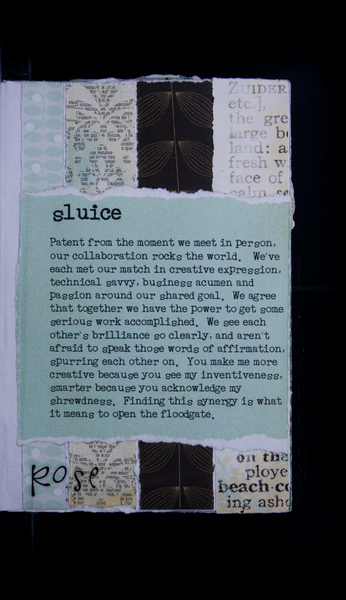 ZUIDER
etc.],
the gre
large be
land: a
fresh w
face of
calm se
sluice
Patent from the moment we meet in person,
our collaboration rocks the world. We've
each met our match in creative expression,
technical savvy, business acumen and
passion around our shared goal. We agree
that together we have the power to get some
serious work accomplished. We see each
other's brilliance so clearly, and aren't
afraid to speak those words of affirmation,
spurring each other on. You make me more
creative because you see my inventiveness,
smarter because you acknowledge my
shrewdness. Finding this synergy is what
it means to open the floodgate.
Rose
on the
ploye
beach-co
ing asho